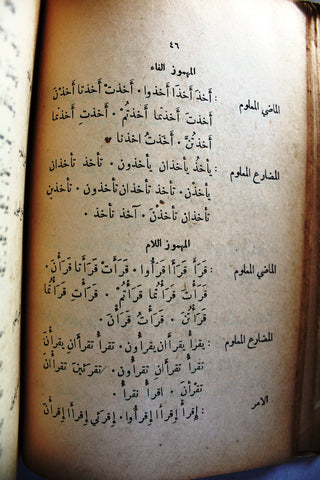 ٤٦
المهموز الفاء
الماضي المعلوم : أَخذَ أَخذَا أَخذُوا . أَخذَتْ أَخذَتا أَخذْنَ
أَخذتَ أَخذتما أَخذتُمْ . أَخذتِ أَخذتما
أَخذتُنَّ . أَخَذتُ اخذنا .
المضارع المعلوم : يأخذُ يأخذان يأخذون . تأخذ تأخذان
يأخذْن . تأخذ تأخذان تأخذون . تأخذين
تأخذان تأخذْنَ . آخذ نأخذ .
المهموز اللام
الماضي المعلوم : قرَأَ قرَأَا قرَأُوا . قرَأَتْ قرَأَتا قرَأْنَ .
قرَأْتَ قرَأْتُما قرَأْتُمْ . قرَأْتِ قرَأْتُما
قرَأْتُنَّ . قرَأْتُ قرَأْنا .
المضارع المعلوم : يقرأ يقرأَان يقرأُون . تقرأُ تقرأَانِ يقرأْنَ
تقرأُ تقرأَان تقرأُون . تقرئين تقرأان
تقرأْنَ . اقرأُ نقرأُ .
الامر : إِقرأْ إِقرأَا إِقرأُوا . إِقرئي إِقرأَا إِقرأْنَ